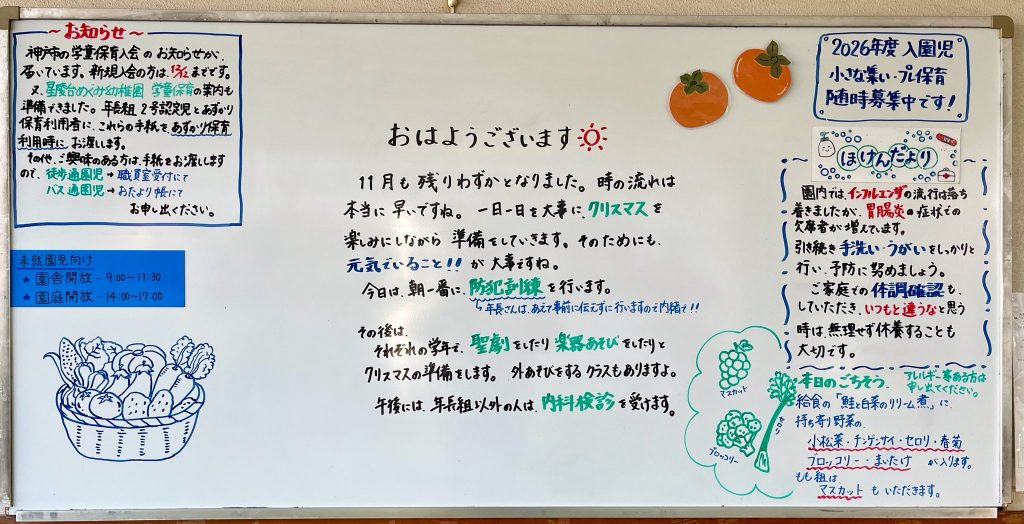 ～お知らせ～
神戸市の学童保育入会のお知らせが、
届いています。新規入会の方は、12/12までです。
又、星陵台めぐみ幼稚園 学童保育の案内も
準備できました。年長組2号認定児とあずかり
保育利用者に、これらの手紙を、あずかり保育
利用時に、お渡します。
その他、ご興味のある方は、手紙をお渡しします
ので、徒歩通園児→職員室受付にて
バス通園児→おたより帳にて
お申し出ください。
未就園児向け
★園舎開放…9:00～11:30
★園庭開放…14:00～17:00
おはようございます
11月も残りわずかとなりました。時の流れは
本当に早いですね。一日一日を大事に、クリスマスを
楽しみにしながら 準備をしていきます。そのためにも、
元気でいること!!が大事ですね。
今日は、朝一番に、防犯訓練を行います。
↳年長さんは、あえて事前に伝えずに行いますので内緒で!!
その後は、
それぞれの学年で、聖劇をしたり 楽器あそびをしたりと
クリスマスの準備をします。外あそびをするクラスもありますよ。
午後には、年長組以外の人は、内科検診を受けます。
2026年度 入園児
小さな集い・プレ保育
随時募集中です！
ほけんだより
園内では、インフルエンザの流行は落ち
着きましたが、胃腸炎の症状での
欠席者が増えています。
引き続き 手洗い・うがいをしっかりと
行い、予防に努めましょう。
ご家庭での体調確認も、
していただき、いつもと違うなと思う
時は無理せず休養することも
大切です。
マスカット
セロリ
ブロッコリー
本日のごちそう
アレルギー等ある方は
申し出てください。
給食の「鮭と白菜のクリーム煮」に、
持ち寄り野菜の、
小松菜・チンゲンサイ・セロリ・春菊
ブロッコリー・まいたけ が入ります。
もも組は
マスカット もいただきます。